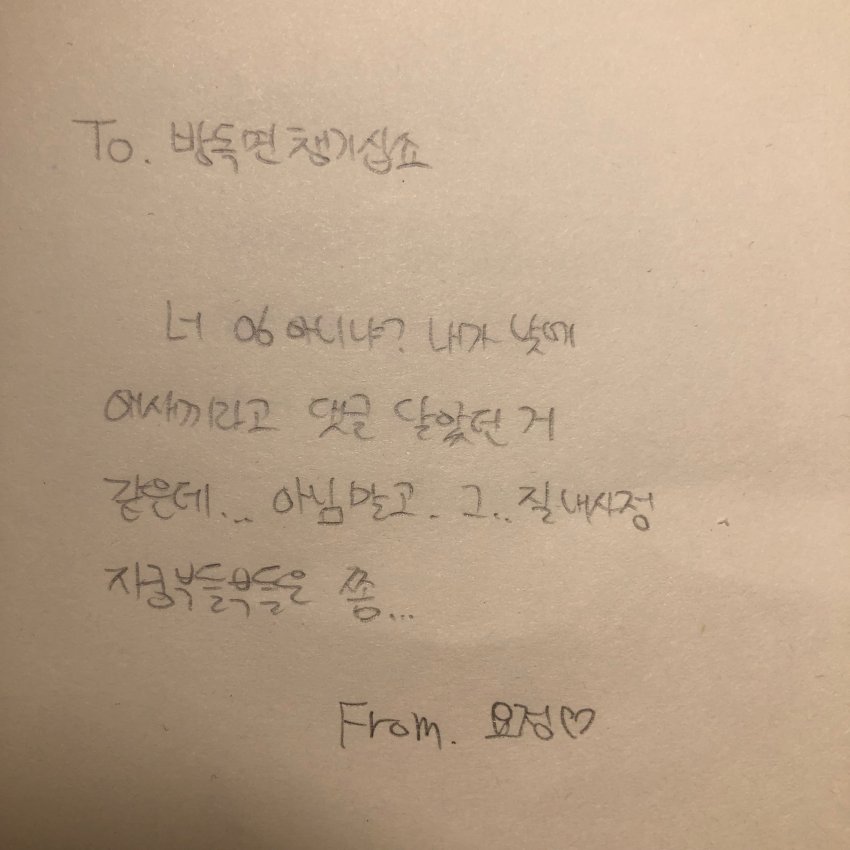 To. 방독면챙기십쇼
너 06 아니냐? 내가 낮에
애새끼라고 댓글 달았던 거
같은데... 아님말고. 그.. 질내사정
자궁부들부들은 쫌...
From. 요정♡